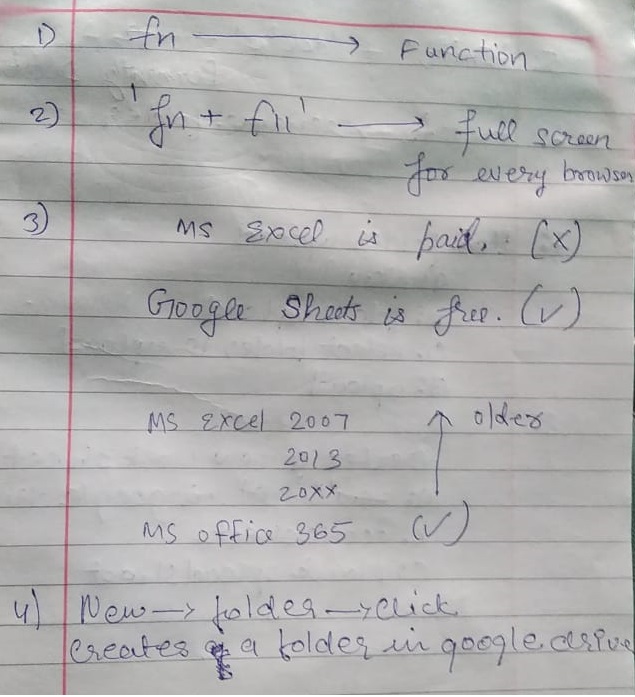 1) fn → Function
2) 'fn + f11' → full screen
for every browser
3) MS Excel is paid. (x)
Google Sheets is free. (✓)
MS Excel 2007 ↑ older
2013
20xx
MS office 365 (✓)
4) New → folder → click
creates a folder in google drive